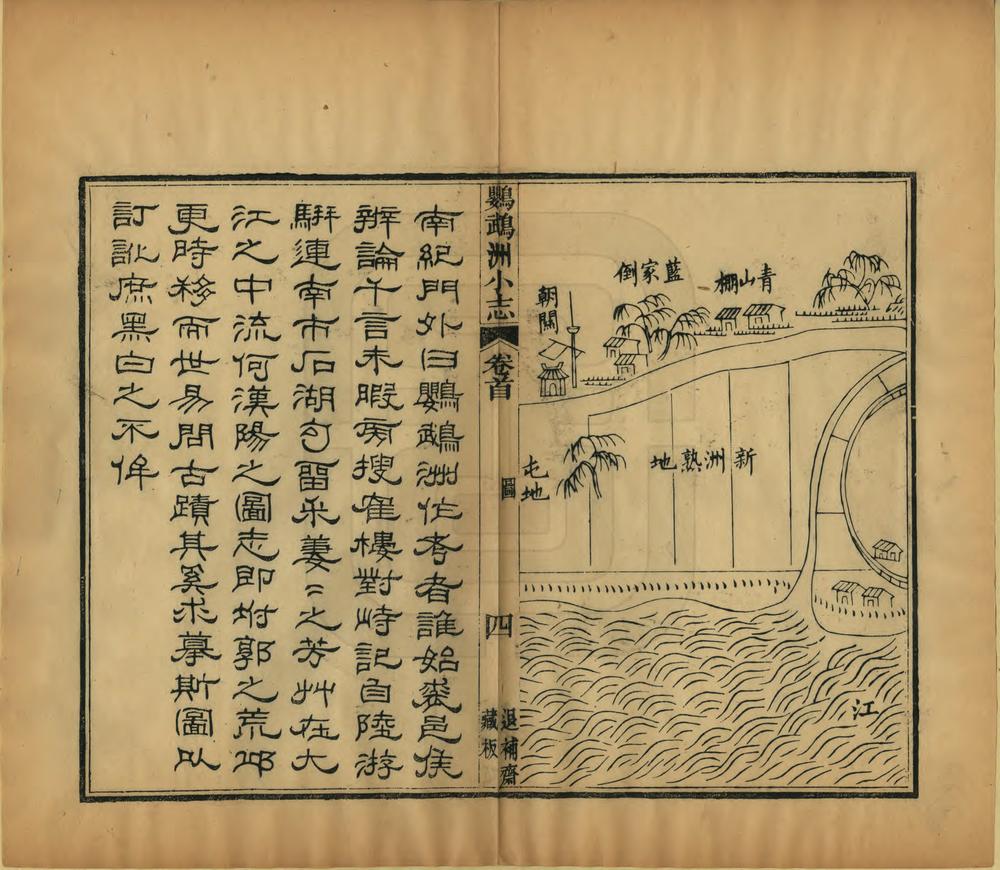 青山棚
藍家倒
朝關
新洲熟地
屯地
江
鸚鵡洲小志 卷首 圖 四 退補齋藏板
南紀門外曰鸚鵡洲作考者誰始裘邑侯
辨論千言未暇旁搜崔樓對峙記自陸游
駢連南市石湖句畱采萋〻之芳艸在大
江之中流何漢陽之圖志即坿郭之荒邱
更時移而世易問古蹟其奚求摹斯圖以
訂訛庶黑白之不侔